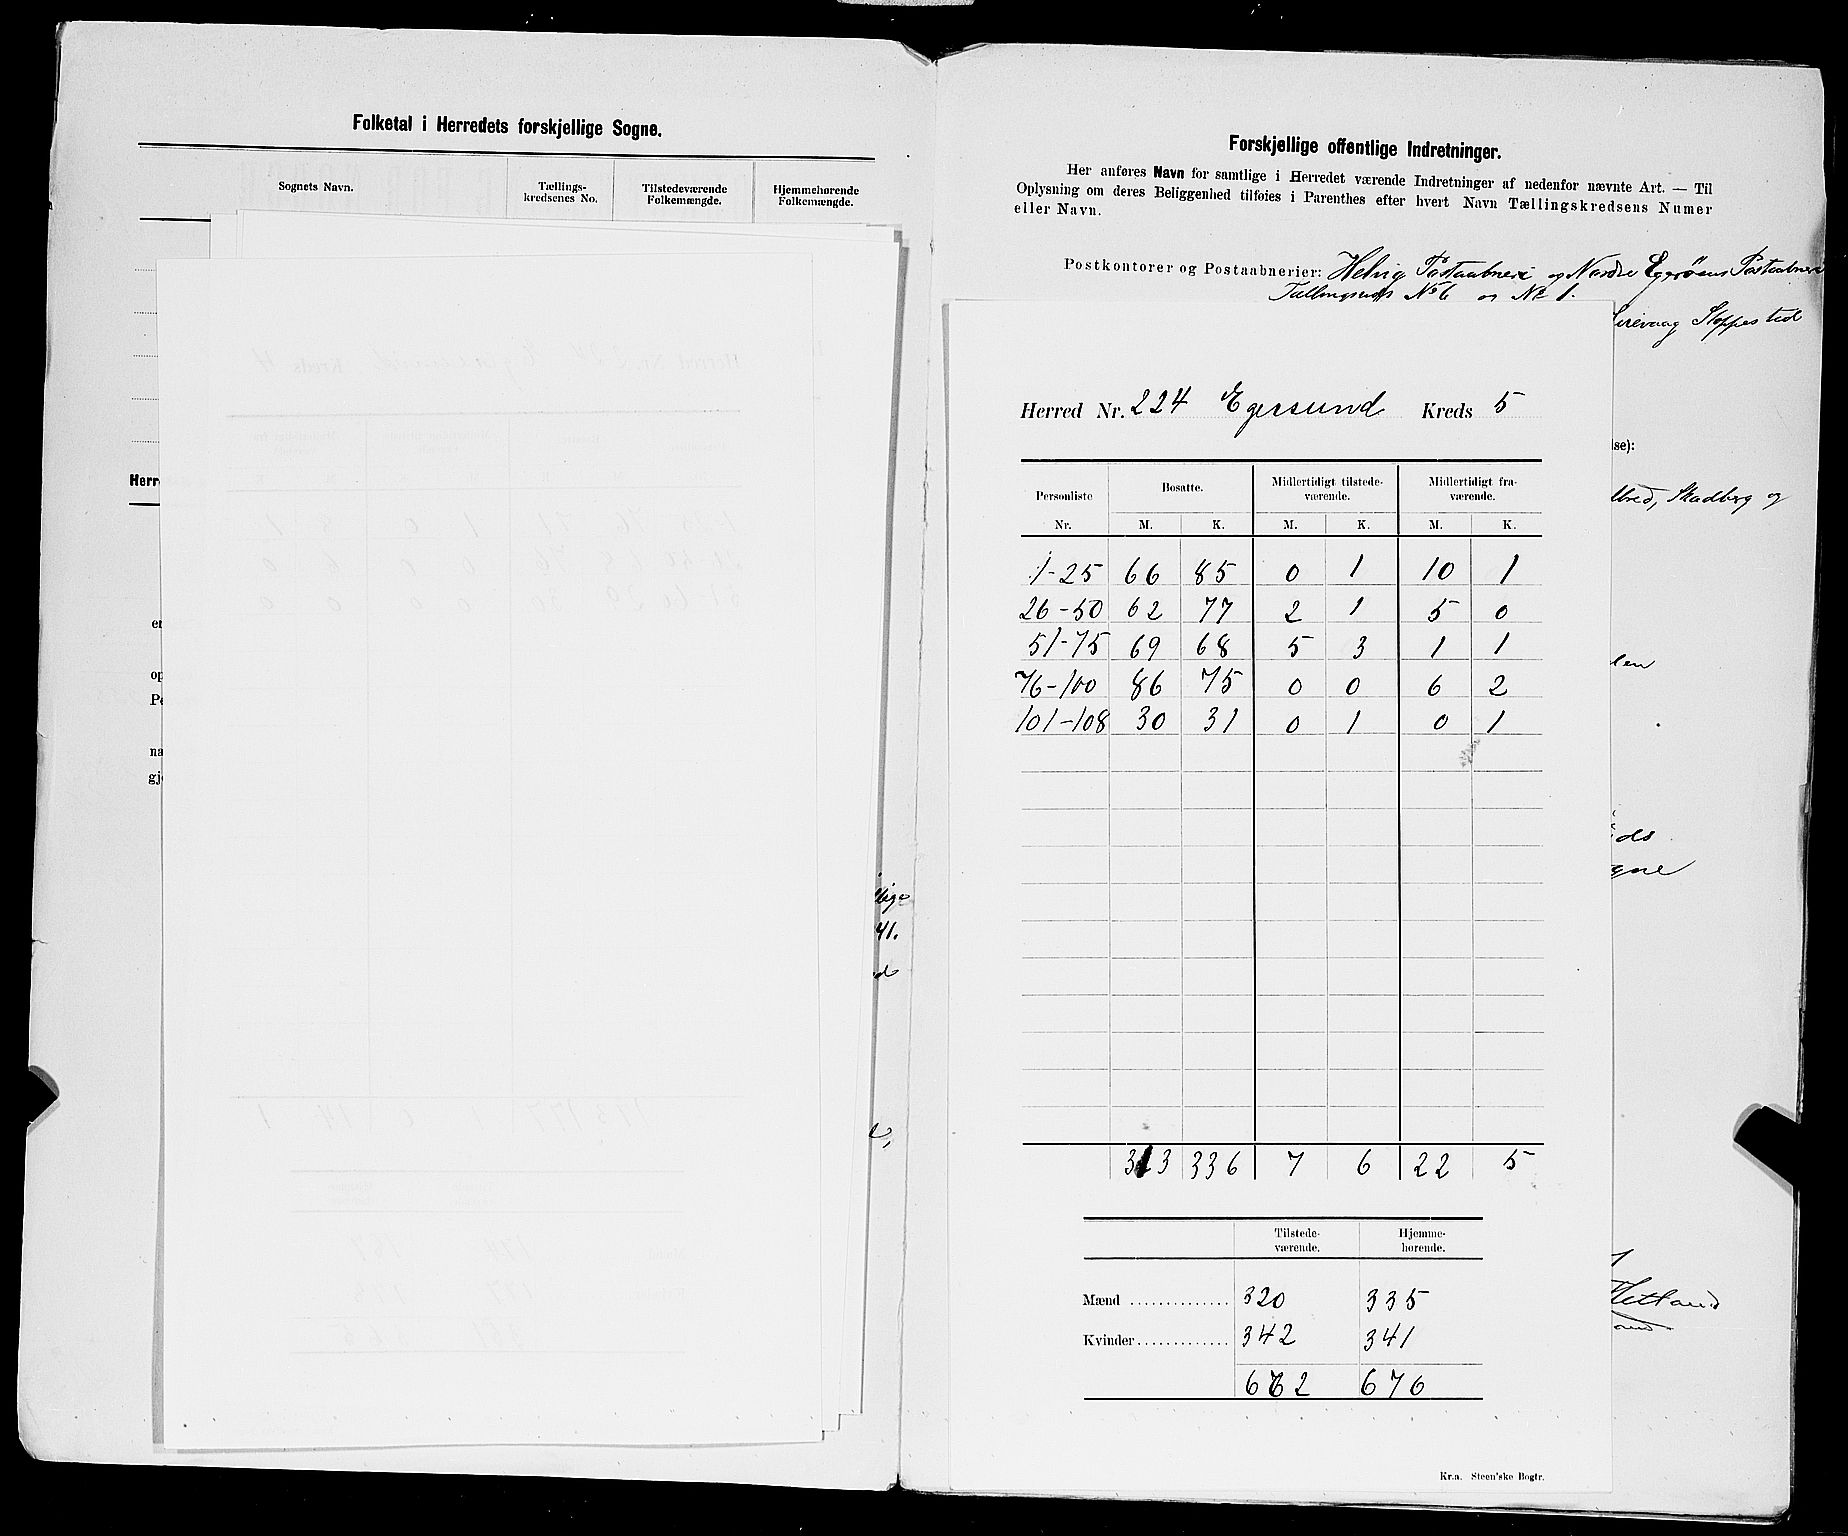 Folketal i Herredets forskjellige Sogne.
Sognets Navn. Tællings-kredsenes No. Tilstedeværende Folkemængde. Hjemmehørende Folkemængde.
Herre
er
op
Pe
na
gje
41.
Forskjellige offentlige Indretninger.
Her anføres Navn for samtlige i Herredet værende Indretninger af nedenfor nævnte Art. — Til
Oplysning om deres Beliggenhed tilføies i Parenthes efter hvert Navn Tællingskredsens Numer
eller Navn.
Postkontorer og Postaabnerier: Helvig Postaabneri og Nordre Egerøens Postaabneri
No 6 og No 1.
irevaag Stoppested
se):
Skadberg og
len
ds
gne
Hetland
Herred Nr. 224 Egersund Kreds 5
Personliste Nr. Bosatte. Midlertidigt tilstede-værende. Midlertidigt fra-værende.
M. K. M. K. M. K.
1-25 66 85 0 1 10 1
26-50 62 77 2 1 5 0
51-75 69 68 5 3 1 1
76-100 86 75 0 0 6 2
101-108 30 31 0 1 0 1
313 336 7 6 22 5
Tilstede-værende. Hjemme-hørende.
Mænd .............. 320 335
Kvinder ............. 342 341
662 676
Kr.a. Steen'ske Bogtr.